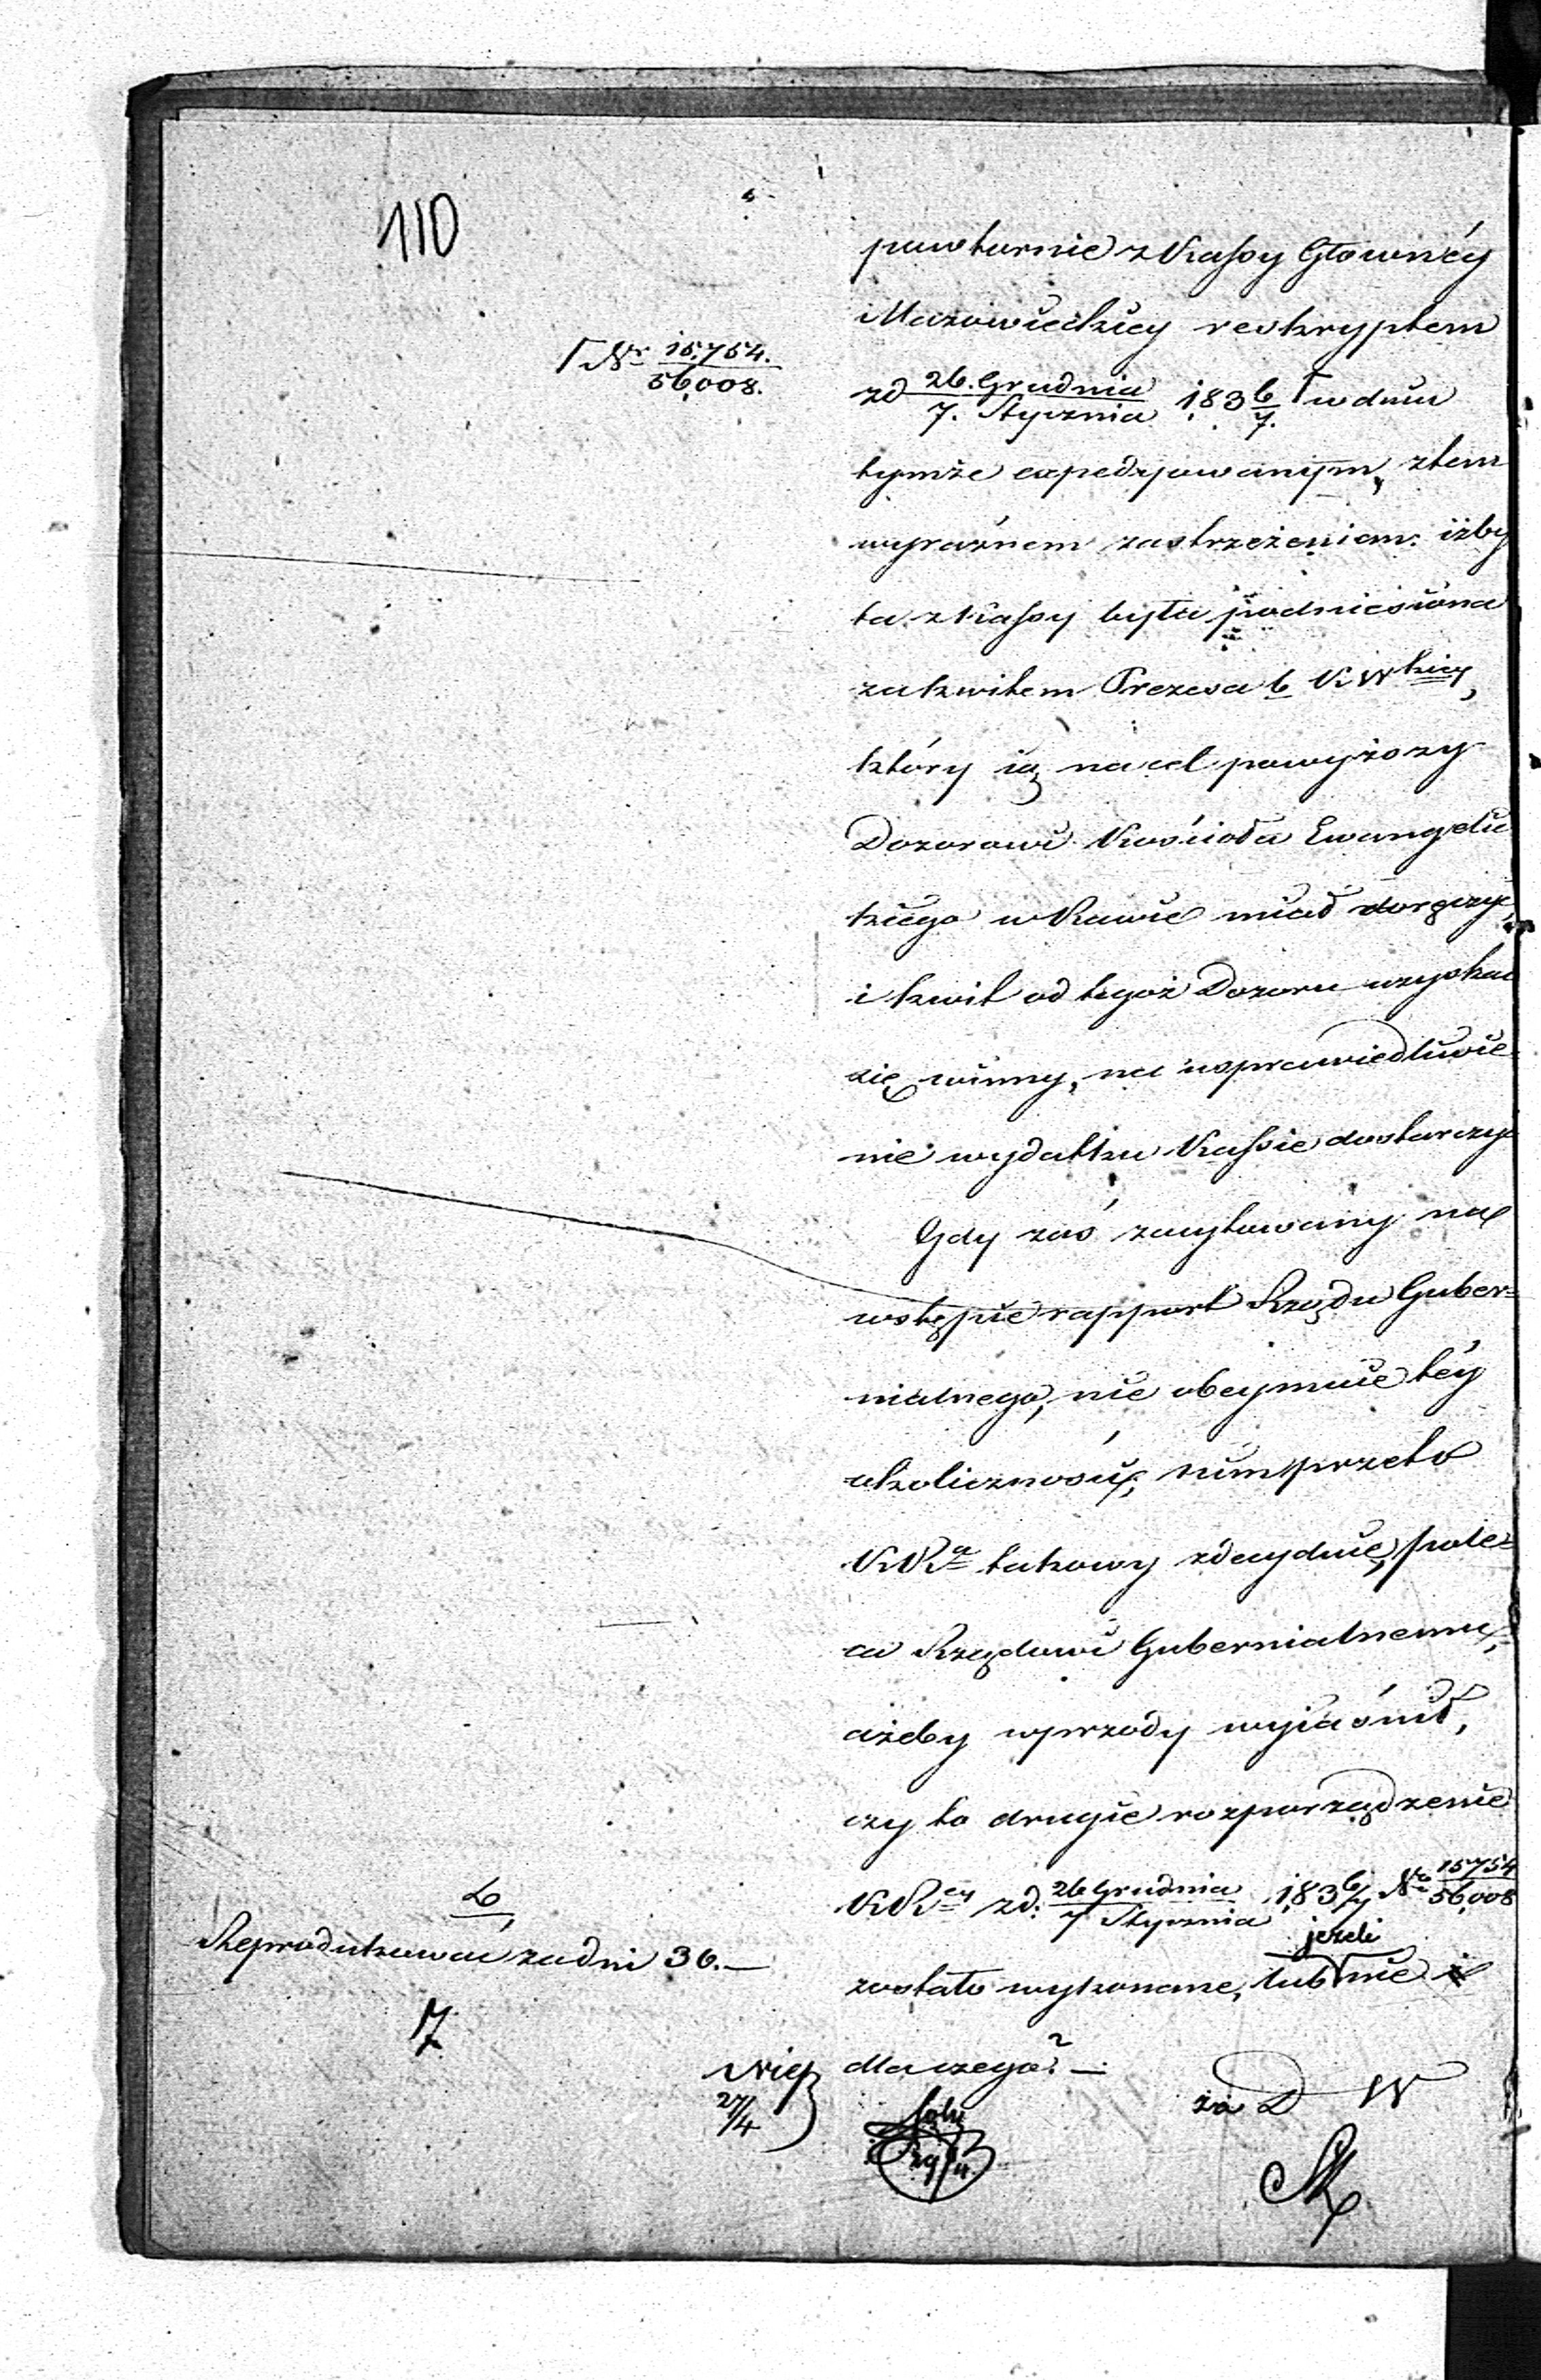 110
powtornie z Kassy Głównéy
Mazowieckiey reskryptem
Nr 15,754./56,008.
zd 26. Grudnia/7. Stycznia 1836/7. w dniu
tymże expedyowanym, z tem
wyraźnem zastrzeżeniem: iżby
ta z Kassy była podniesiona
za kwitem Prezesa b. K Wkiey,
który ią na cel powyższy
Dozorowi Kościoła Ewangelic
kiego w Rawie miał doręczyć,
i kwit od tegoż Dozoru uzyskać
się winny, na usprawiedliwie-
nie wydatku Kassie dostarczyć
Gdy zaś zacytowany na
wstępie rapport Rządu Guber=
nialnego, nie obeymuie téy
okoliczności, nim przeto
KRa takowy zdecyduie, pole=
ca Rządowi Gubernialnemu,
ażeby wprzódy wyiaśnił,
czy to drugie rozporządzenie
KRey zd. 26 Grudnia/7 Stycznia 1836/7 Nr 15754/56,008
jeżeli
zostało wykonane, lub nie i
dla czego? —
2,
Reprodukować za dni 30. —
27/4
za D W
29/4